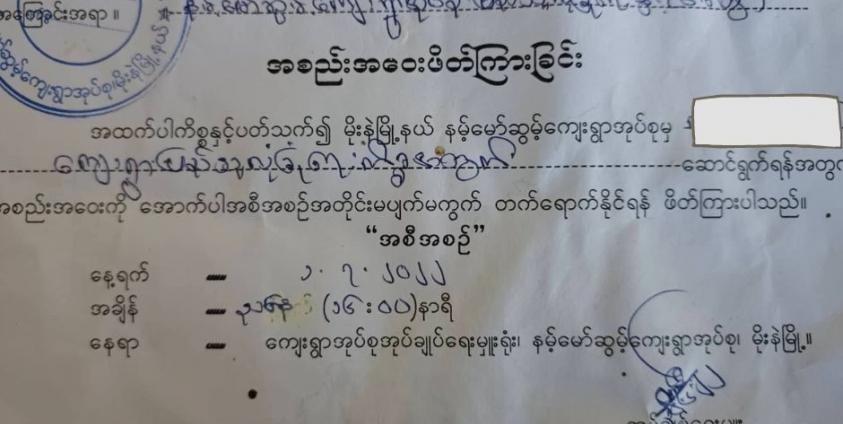 အကြောင်းအရာ။
ကျေးရွာအုပ်စု၊မိုးနဲမြို့နယ်
အစည်းအဝေးဖိတ်ကြားခြင်း
အထက်ပါကိစ္စနှင့်ပတ်သက်၍ မိုးနဲမြို့နယ် နမ့်မော်ဆွမ့်ကျေးရွာအုပ်စုမှ
ကျေးရွာပြည်သူ ဆောင်ရွက်ရန်အတွက်
အစည်းအဝေးကို အောက်ပါအစီအစဉ်အတိုင်းမပျက်မကွက် တက်ရောက်နိုင်ရန် ဖိတ်ကြားပါသည်။
“အစီအစဉ်”
နေ့ရက် – ၁.၇.၂၀၂၂
အချိန် – ညနေ (၁၆:၀၀)နာရီ
နေရာ – ကျေးရွာအုပ်စုအုပ်ချုပ်ရေးမှူးရုံး၊ နမ့်မော်ဆွမ့်ကျေးရွာအုပ်စု၊ မိုးနဲမြို့။